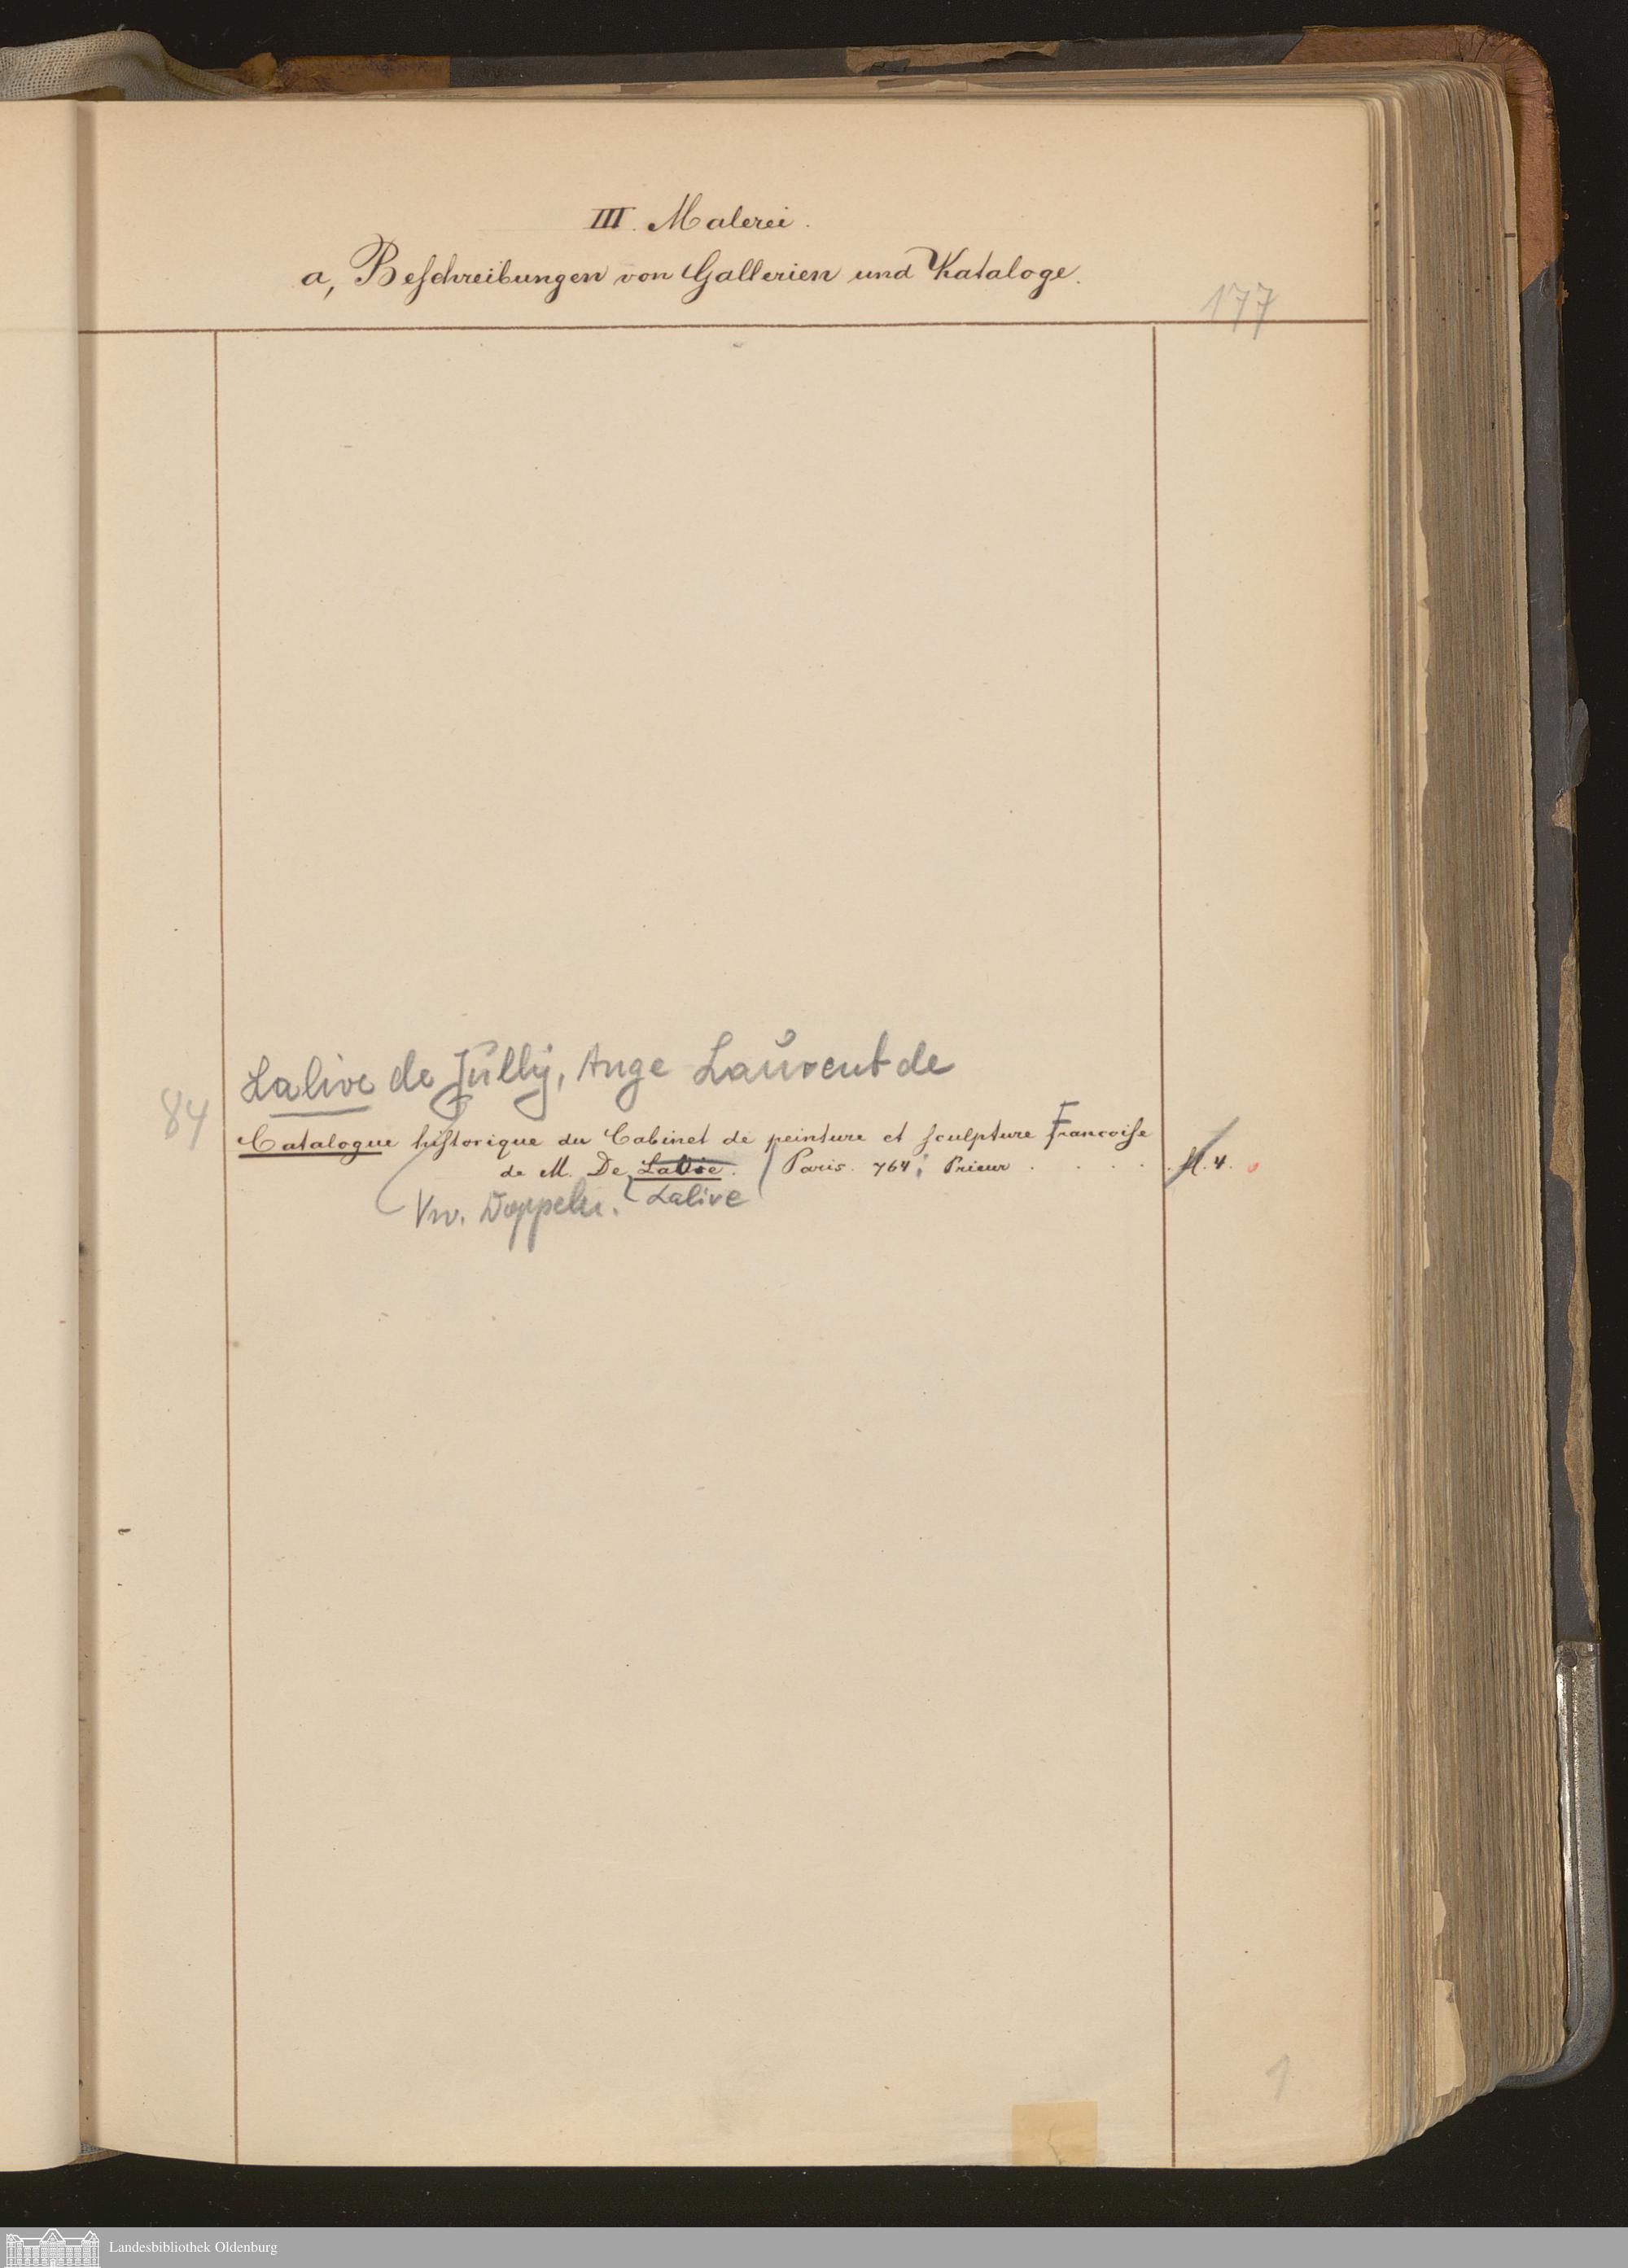 III. Malerei.
a, Beschreibungen von Gallerien und Kataloge.
177
Lalive de Jully, Ange Laurent de
84
Catalogue historique du Cabinet de peinture et sculpture Francoise
de M. De Paris. 764; Prieur . . . . . 4.
Lalive
1
Landesbibliothek Oldenburg